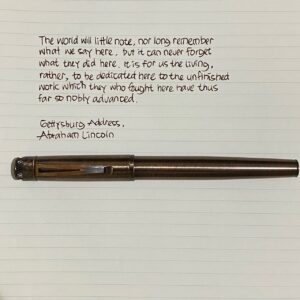 The world will little note, nor long remember
what we say here, but it can never forget
what they did here. It is for us the living,
rather, to be dedicated here to the unfinished
work which they who fought here have thus
far so nobly advanced.
Gettysburg Address,
Abraham Lincoln